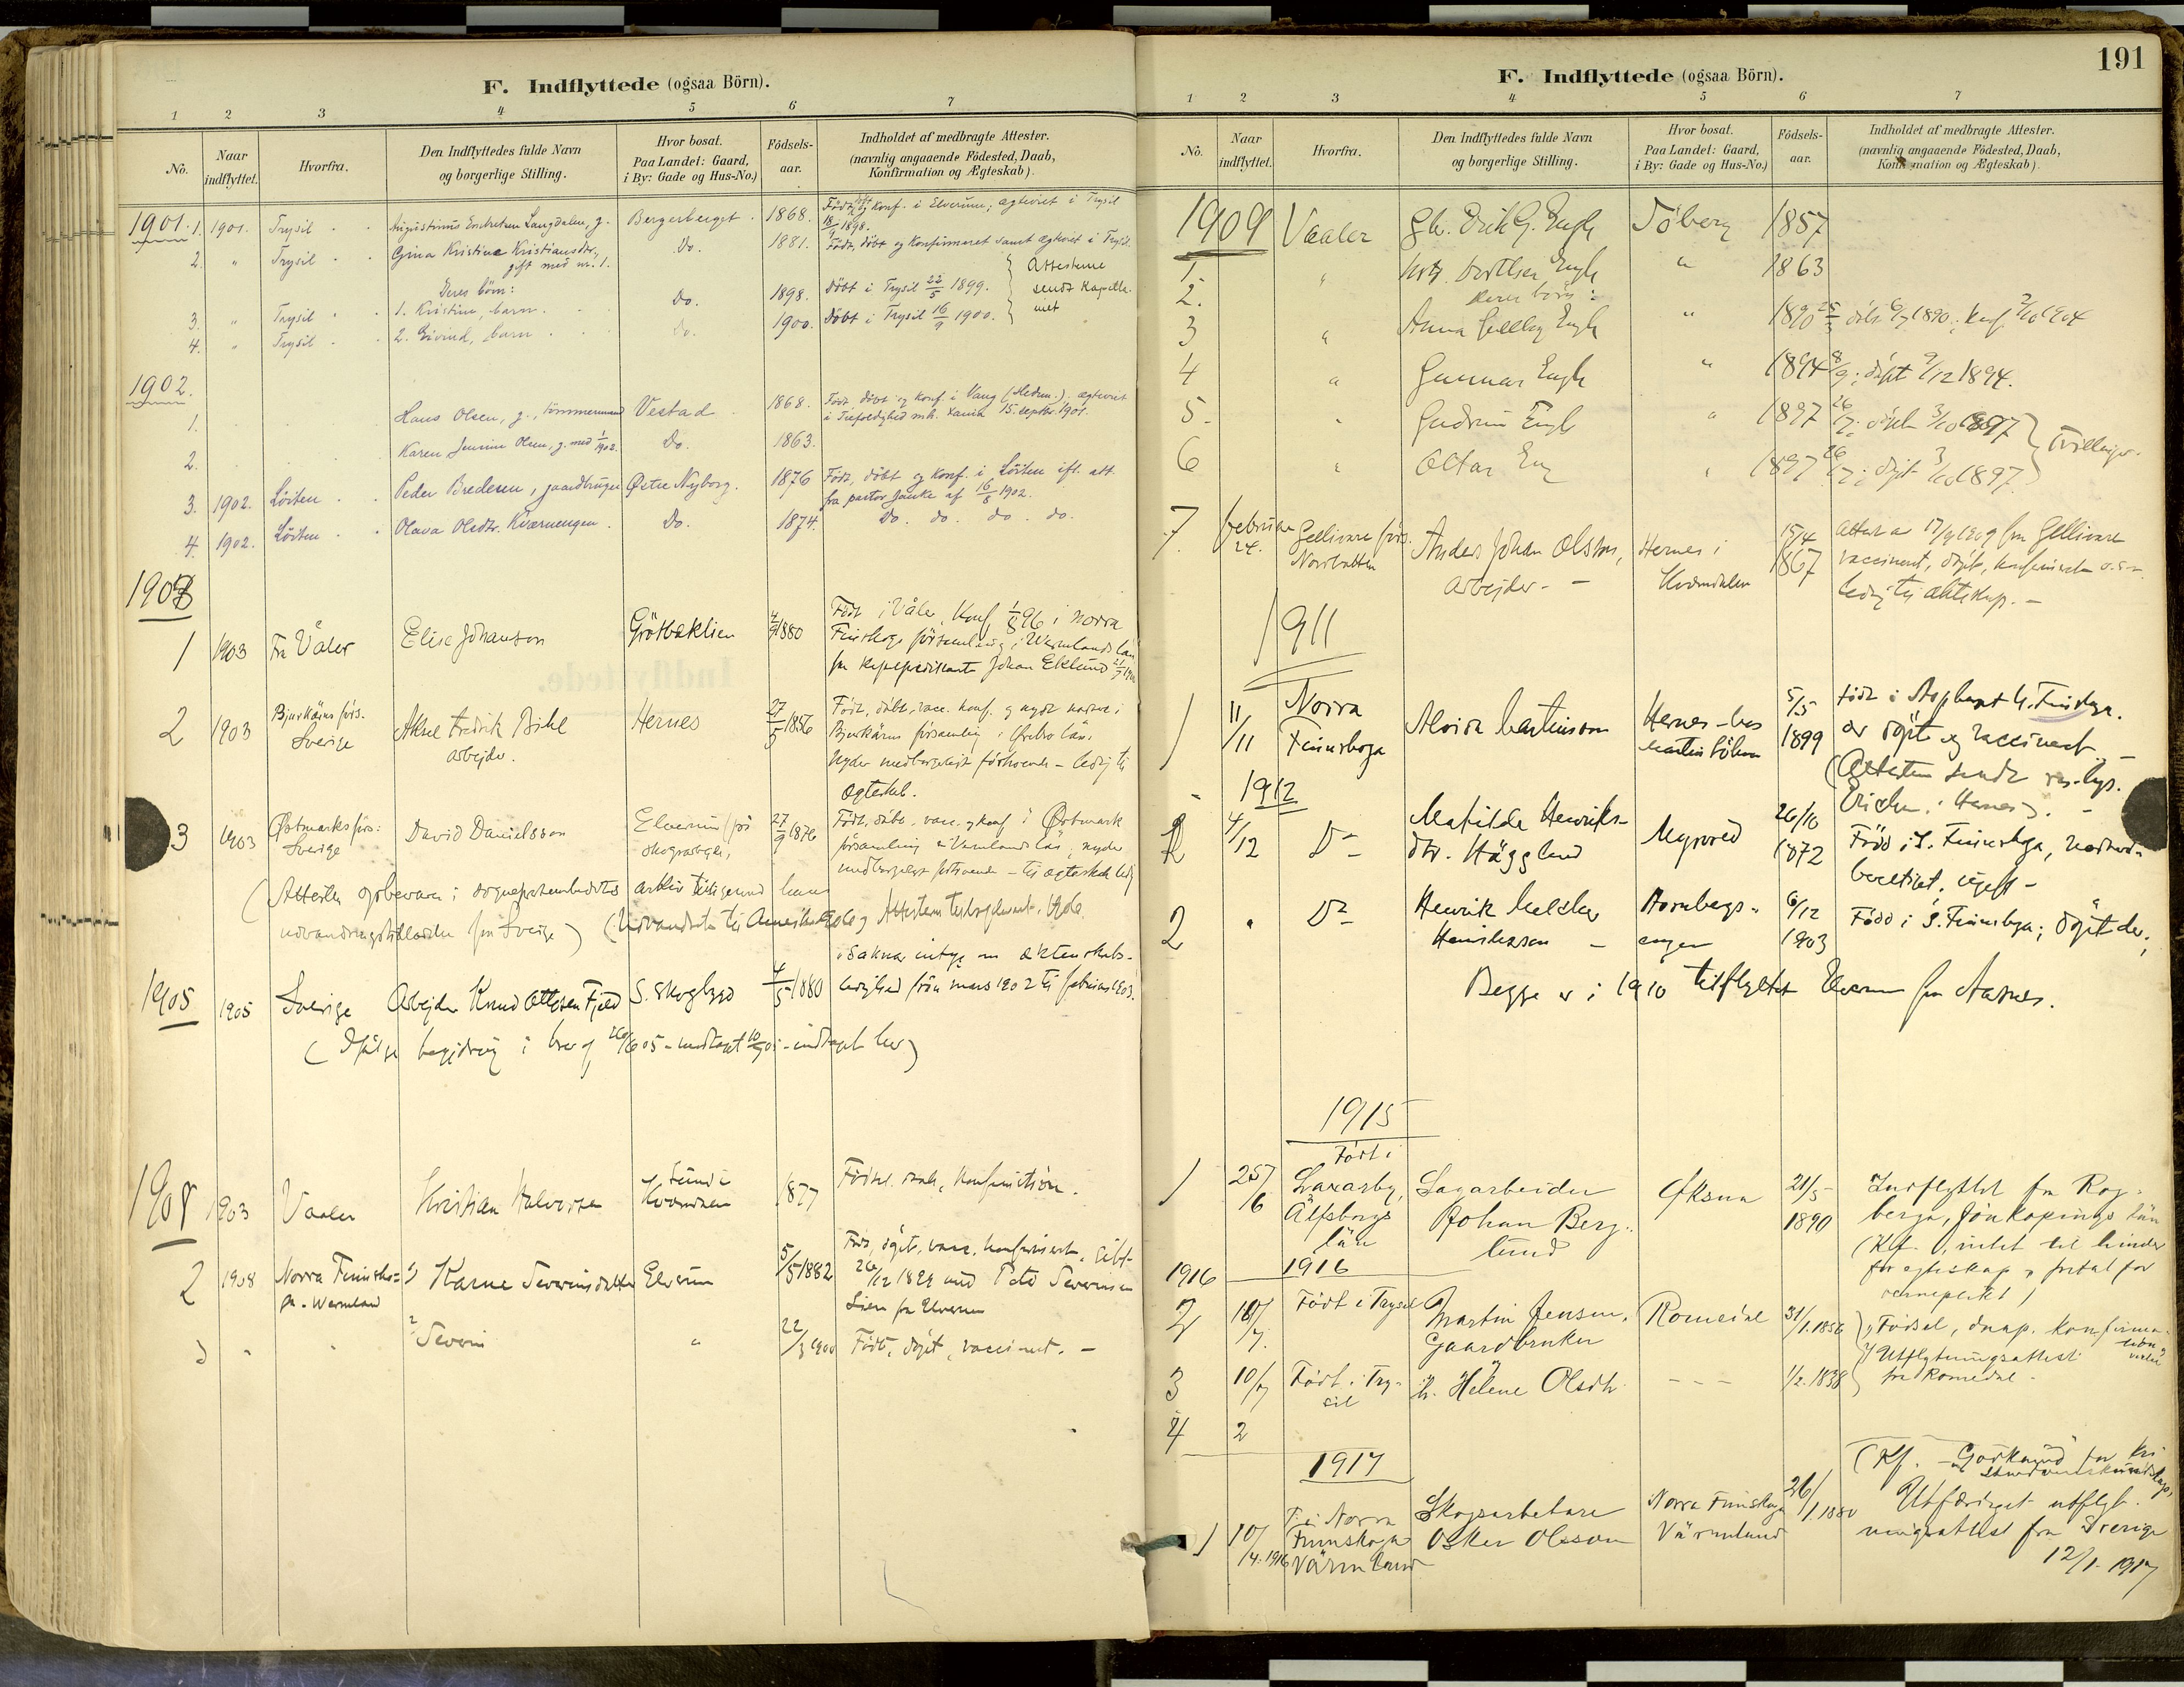 F. Indflyttede (ogsaa Börn).
1 2 3 4 5 6 7
No. Naar indflyttet. Hvorfra. Den Indflyttedes fulde Navn og borgerlige Stilling. Hvor bosat. Paa Landet: Gaard, i By: Gade og Hus-No.) Fødsels-aar. Indholdet af medbragte Attester. (navnlig angaaende Födested, Daab, Konfirmation og Ægteskab).
1901. 1. 1901. Trysil Augustinus Embretsen Langdalen, g. Bergerberget 1868. Födt, döbt og konf. i Elverum; ægteviet i Trysil 18/9 1898.
2. " Trysil Gina Kristine Kristiansdtr, gift med nr. 1. Do. 1881. Födt, döbt og konfirmeret samt ægteviet i Trysil.
Deres börn:
3. " Trysil 1. Kristine, barn Do. 1898. Döbt i Trysil 22/5 1899. } Attesterne sendt kapellanet
4. " Trysil 2. Eivind, barn Do. 1900. Döbt i Trysil 16/9 1900.
1902.
1. Hans Olsen, g., tömmermand Vestad 1868. Födt, döbt og konf. i Vang (Hedm.). ægteviet i Trefoldighed mh. Xania 15. septbr. 1901.
2. Karen Olsen, g. med 1/1902. Do. 1863.
3. 1902. Löiten Peder Bredesen, gaardbruger Østre Nyborg. 1876 Födt, döbt og konf. i Löiten ifl. att. fra pastor af 16/8 1902.
4. 1902. Löiten Olava Olsdtr. Kværnengen. Do. 1874. Do. do. do. do.
1903
1 1903 Fra Våler Elise Johanson Grötbæklien 4/9 1880 Födt i Våler, Konf 1/8 96 i Norra
Finskoga församling i Wermlands län
fra Johan Eklund
2 1903 Bjurkärns förs. Sverige Aksel Fredrik Bihl arbejder. Hernes 27/5 1856 Födt, döbt, vacc. konf. og nydt nadver i
Bjurkärns församling i Örebro län.
Nyder medborgeligt förtroende - ledig til
ægteskab.
3 1903 Östmarks förs: Sverige David Danielsson Elverum skogsarbejder, 27/9 1876 Födt, döbt, vacc. og konf i Östmark
församling i Vermlands län; nyder
medborgeligt förtroende - til ægteskab ledig
(Attesten opbevares i sogneprestembedets arkiv tilligemed hans
udvandringstilladelse fra Sverige) (Udvandrede til Amerika og Attesten tilbageleveret, 1906.
Saknar intyg om äktenskabs-
ledighed från mars 1902 til februari 1903.
1905 1905 Sverige Arbejder Knud Ottosen Fjeld S. Skogbygd 4/5 1880
(Ifölge begjæring i brev af 26/6 05 - modtaget 10/7 05 - indtaget her)
1908 1903 Vaaler Kristian Halvorsen Sund i Kværndalen 1877 Födsel, daab, konfirmation.
2 1908 Norra Finskoga - Wermland 1) Karne Severinsdatter Elverum 5/5 1882 Född, döpt, vacc. konfirmert. Gift
26/12 1899 med Peter Severinsen
Lien fra Elverum
3 " " 2 Severin " 22/3 1900 Född, döpt, vaccinert. -
F. Indflyttede (ogsaa Börn). 191
1 2 3 4 5 6 7
No. Naar indflyttet. Hvorfra. Den Indflyttedes fulde Navn og borgerlige Stilling. Hvor bosat. Paa Landet: Gaard, i By: Gade og Hus-No.) Fødsels-aar. Indholdet af medbragte Attester. (navnlig angaaende Födested, Daab, Konfirmation og Ægteskab).
1909 Vaaler Erik G. Engh Töberg 1857
1. " Engh " 1863
2. deres börn:
3 " Anna Engh " 1890 25/3 döbt 6/7 1890; konf. 2/10 1904
4 " Gunnar Engh " 1894 8/9; döpt 9/12 1894.
5. " Gudrun Engh " 1897 26/7; döpt 3/10 1897 } Tvillinger.
6 " Engh " 1897 26/7; döpt 3/10 1897
7. februar 24. Gellivare förs. Norrbotten Anders Johan Olsson, Arbejder. - Hernes i Kværndalen 15/4 1867 Attest av 17/9 1909 fra Gellivare
vaccinert, döpt, konfirmert o.s.v.
ledig til ektskap. -
1911
1 11/11 Norra Finskoga Martinsson Hernes - hos 5/5 1899 född i S. Finskoga.
er döpt og vaccinert.
(Attesten sendt res. kap.
Hernes). -
1912
1 4/12 Do Matilde Henriksdtr. Hägglund Myrvold 26/10 1872 Född i S. Finskoga, nadverd-
berettiget, ugift -
2 " Do Henrik Melcher Henriksson - Hornbergsengen 6/12 1903 Född i S. Finskoga; döpt der.
Begge er i 1910 tilflyttet Elverum fra Aasnes.
1915
1 25/6 Född i Laxarby, Älfsborgs län Sagarbeider Johan Berglund Öksna 21/5 1890 Indflyttet fra Rogberga, Jönkøpings län
(Kf. , intet til hinder
for egteskap, fretal for
verneplikt)
1916 1916
2 10/7. Födt i Trysil Martin Jensen, Gaardbruker Romedal 31/1. 1856 } 1) Födsel, daap. konfirmation, vielse
3 10/7 Födt i Trysil h. Helene Olsdtr. - - - 1/2. 1838 } 2) Utflytningsattest fra Romedal.
4 2
1917
1 10/4. 1916 F. i Norra Finnskoga Värmland Skogsarbetare Oskar Olsson Norra Finnskoga Värmland 26/1. 1880 (Kf. - Godkänd
Utfærdiget utflyt-
ningsattest fra Sverige
12/1. 1917